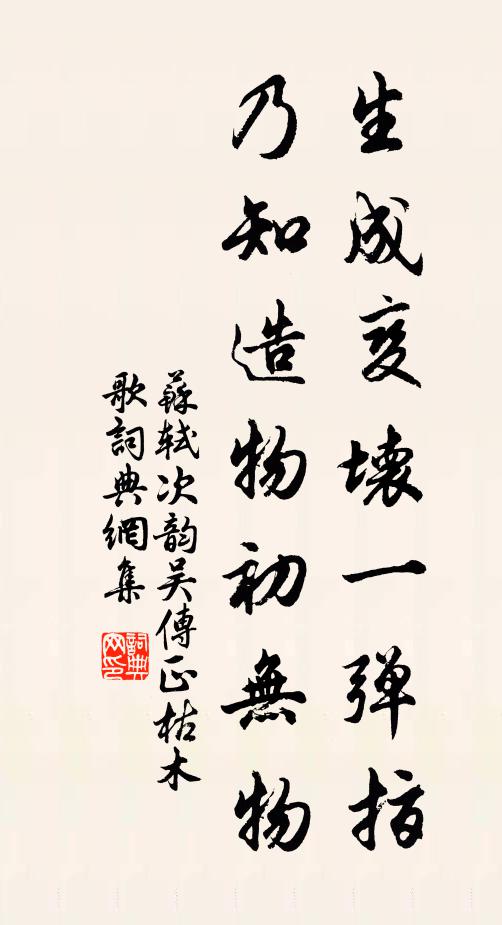 生成变壞一弹指
乃知造物初無物
蘇軾次韵吴傳正枯木
歌詞典網集
詞典
网印